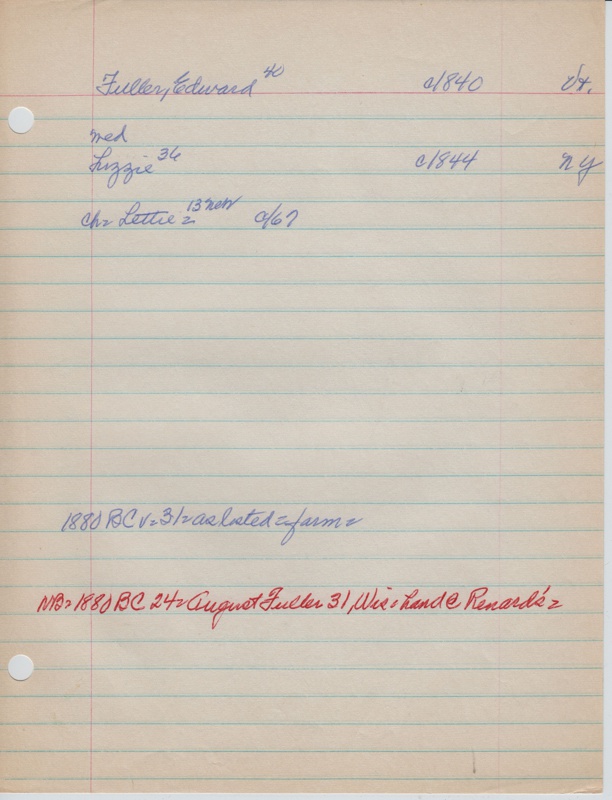 Fuller, Edward 40 c1840 Vt.
med
Lizzie 36 c1844 ny
ch= Lettie= 13 neb c/67
1880 BC v=31=as listed=farm=
NB=1880 BC 24=August Fuller 31, Wis=hand @ Renard's=